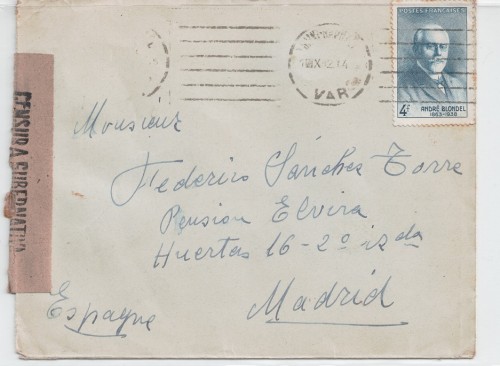 POSTES FRANÇAISES
4F
ANDRÉ BLONDEL
1863-1938
VAR
CENSURA GUBERNATIVA
Monsieur
Federico Sánches Torre
Pension Elvira
Huertas 16-2º izda
Madrid
Espagne